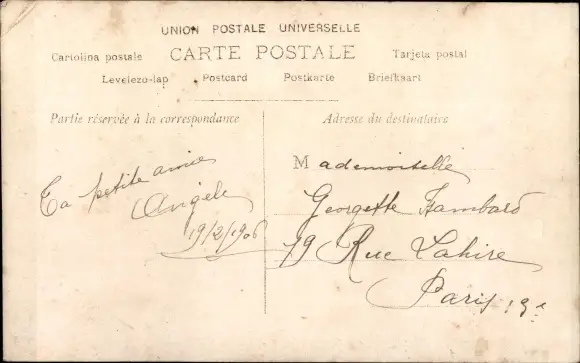 UNION POSTALE UNIVERSELLE
CARTE POSTALE
Cartolina postale
Tarjeta postal
Levelezo-lap Postcard Postkarte Briefkaart
Partie réservée à la correspondance
Ta petite amie
Angèle
19/2/1906
Adresse du destinataire
Mademoiselle
Georgette Isambard
19 Rue Lahire
Paris 13e